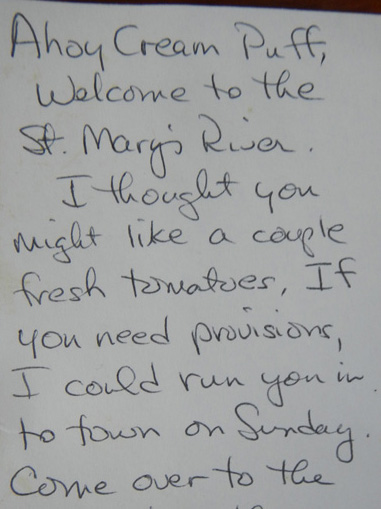 Ahoy Cream Puff,
Welcome to the
St. Mary's River.
I thought you
might like a couple
fresh tomatoes, If
you need provisions,
I could run you in
to town on Sunday.
Come over to the